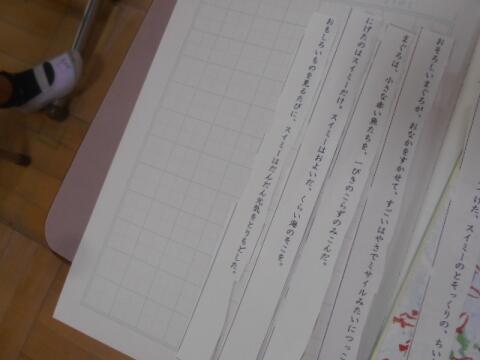 おそろしいまぐろが、おなかをすかせて、すごいはやさでミサイルみたいにつっこ
まぐろは、小さな赤い魚たちを、一ぴきのこらずのみこんだ。
にげたのはスイミーだけ。スイミーはおよいだ、くらい海のそこを。
おもしろいものを見るたびに、スイミーはだんだん元気をとりもどした。
つけた、スイミーのとそっくりの、ちい